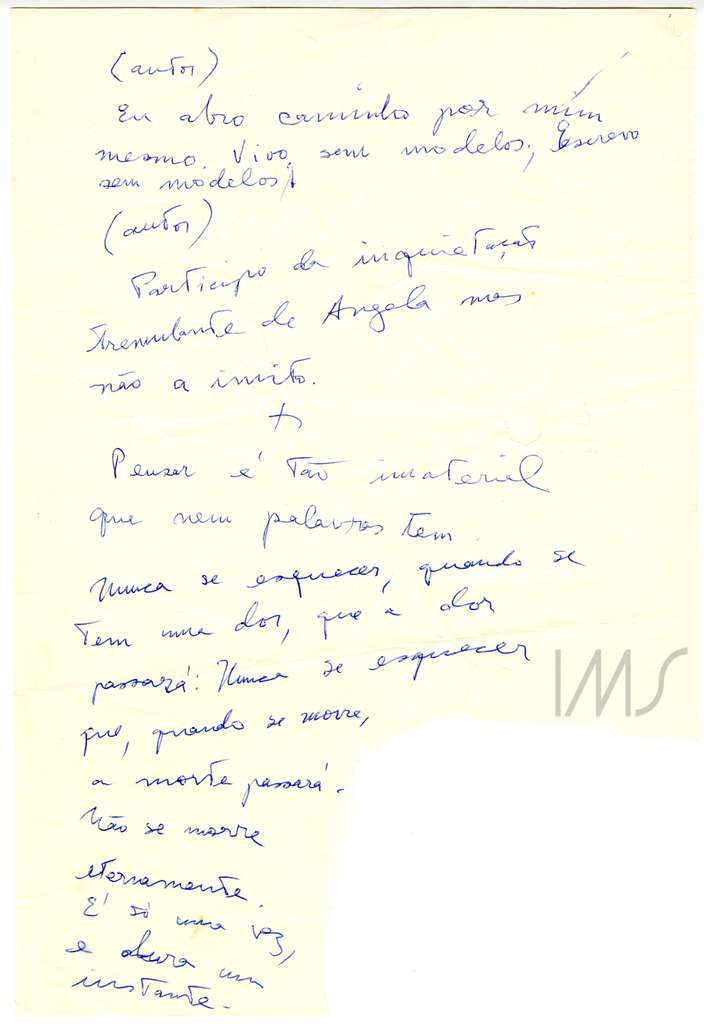 (autor)
Eu abro caminho por mim
mesmo. Vivo sem modelos; Escrevo
sem modelos.
(autor)
Participo da inquietação
tremulante de Angela mas
não a imito.
+
Pensar é tão imaterial
que nem palavras tem.
Nunca se esquecer, quando se
tem uma dor, que a dor
passará: Nunca se esquecer
que, quando se morre,
a morte passará.
Não se morre
eternamente.
É só uma vez,
e dura um
instante.
IMS